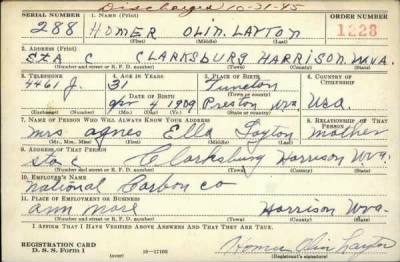 Discharged 10-31-45
SERIAL NUMBER 1. NAME (Print) ORDER NUMBER
288 HOMER OLIN LAYTON 1328
(First) (Middle) (Last)
2. ADDRESS (Print)
STA C CLARKSBURG HARRISON W.VA.
(Number and street or R. F. D. number) (Town) (County) (State)
3. TELEPHONE 4. AGE IN YEARS 5. PLACE OF BIRTH 6. COUNTRY OF CITIZENSHIP
4461 J. 31 Tunelton
DATE OF BIRTH (Town or county)
Apr 4 1909 Preston Wva. U.S.a.
(Exchange) (Number) (Mo.) (Day) (Yr.) (State or country)
7. NAME OF PERSON WHO WILL ALWAYS KNOW YOUR ADDRESS 8. RELATIONSHIP OF THAT PERSON
Mrs Agnes Ella Layton Mother
(Mr., Mrs., Miss) (First) (Middle) (Last)
9. ADDRESS OF THAT PERSON
Sta C Clarksburg Harrison Wva.
(Number and street or R. F. D. number) (Town) (County) (State)
10. EMPLOYER'S NAME
National Carbon Co
11. PLACE OF EMPLOYMENT OR BUSINESS
Ann more Harrison Wva.
(Number and street or R. F. D. number) (Town) (County) (State)
I AFFIRM THAT I HAVE VERIFIED ABOVE ANSWERS AND THAT THEY ARE TRUE.
REGISTRATION CARD
D. S. S. Form 1 16—17105 Homer Olin Layton
(Registrant's signature)